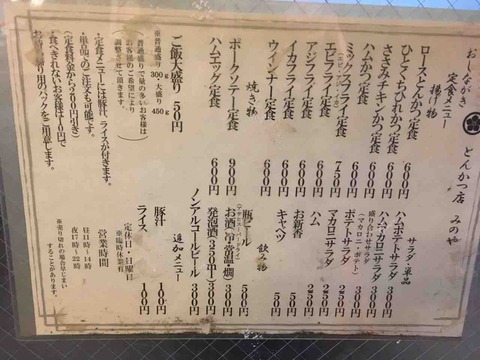 おしながき
とんかつ店 みのや
定食メニュー
揚げ物
ロースとんかつ定食 600円
ひとくちひれかつ定食 600円
ささみチキンかつ定食 600円
ハムかつ定食 600円
ミックスフライ定食 750円
エビフライ定食 600円
アジフライ定食 600円
イカフライ定食 600円
ウィンナー定食 600円
焼き物
ポークソテー定食 900円
ハムエッグ定食 600円
ご飯大盛り 50円
※普通盛り 300g 大盛り 450g
普通盛りで量の多いお客様は
お客様のご希望により
調整させて頂きます。
・定食メニューには豚汁、ライスが付きます。
・単品でのご注文も可能です。
(定食料金から200円引き)
・食べきれないお客様は10円で
お持ち帰り用のパックをご用意します。
サラダ・単品
ハムポテトサラダ 300円
ハムマカロニサラダ 300円
盛り合わせサラダ 300円
(マカロニ・ポテト)
ポテトサラダ 250円
マカロニサラダ 250円
ハム 250円
お新香 50円
キャベツ 50円
飲み物
瓶ビール 500円
お酒(冷・常温・燗) 300円
発泡酒(350ml) 300円
ノンアルコールビール 300円
追加メニュー
豚汁 100円
ライス 100円
定休日・日曜日
※臨時休業有
営業時間
昼11時〜14時
夜17時〜22時
※売り切れの場合早じまい
することがあります。